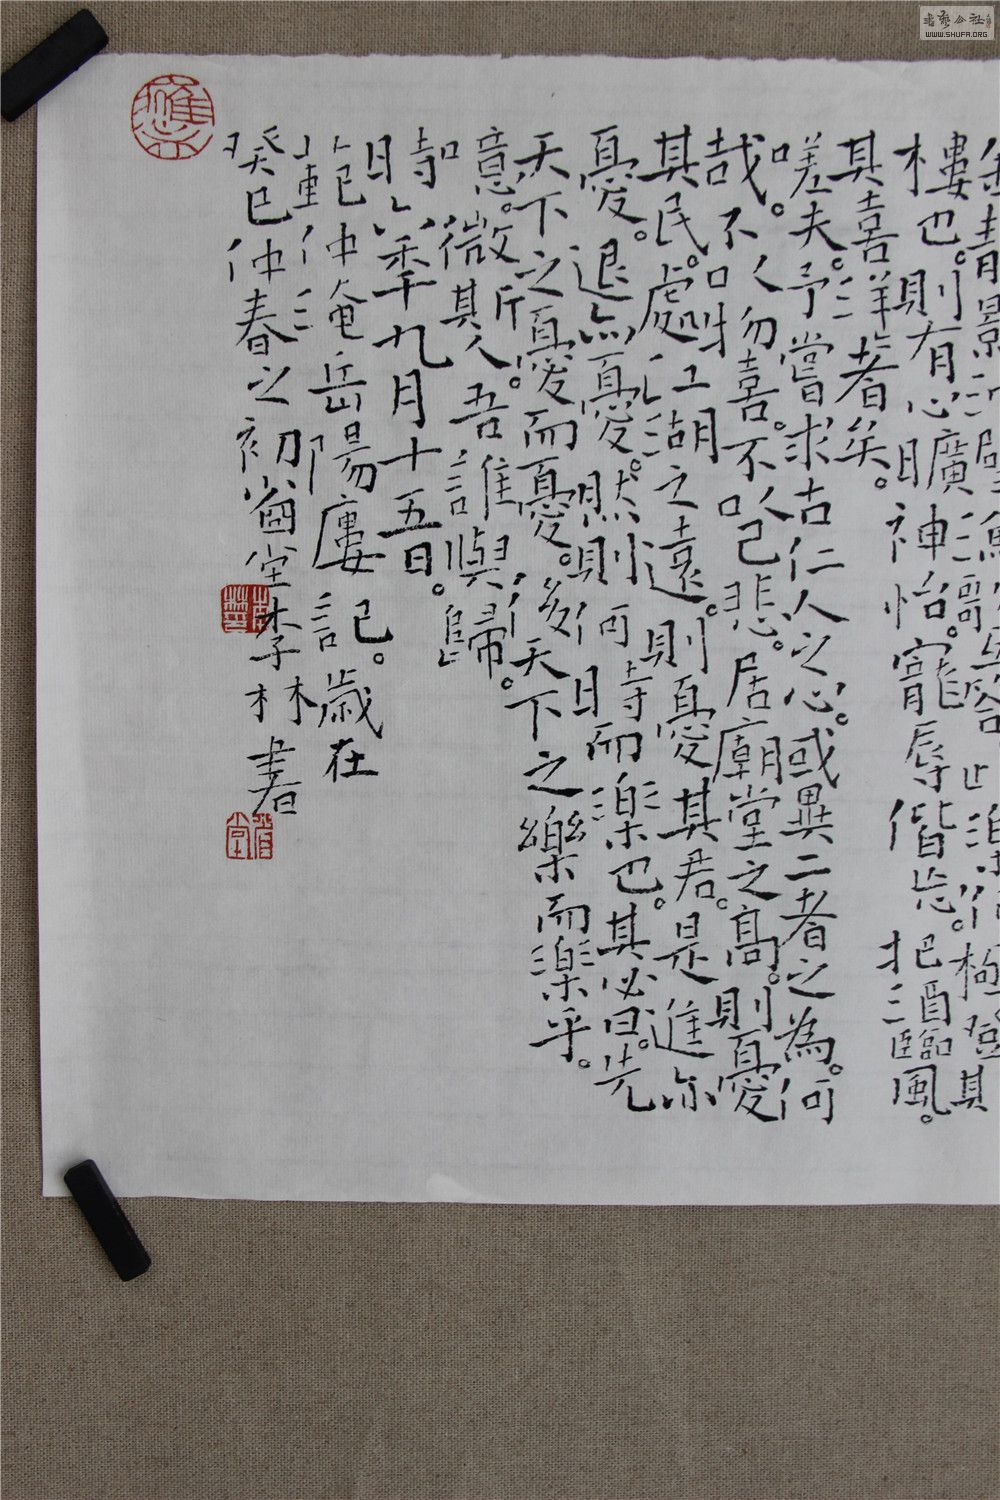 此樂何極登
樓也。則有心曠神怡。寵辱偕忘。把酒臨風。
其喜洋洋者矣。
嗟夫。予嘗求古仁人之心。或異二者之為。何
哉。不以物喜。不以己悲。居廟堂之高。則憂
其民。處江湖之遠。則憂其君。是進亦
憂。退亦憂。然則何時而樂也。其必曰。先
天下之憂而憂。後天下之樂而樂乎。
噫。微斯人吾誰與歸。
時六年九月十五日。
範仲淹岳陽樓記。歲在
癸巳仲春之初嗇堂李林書
李林
嗇堂
书艺公社
WWW.SHUFA.ORG